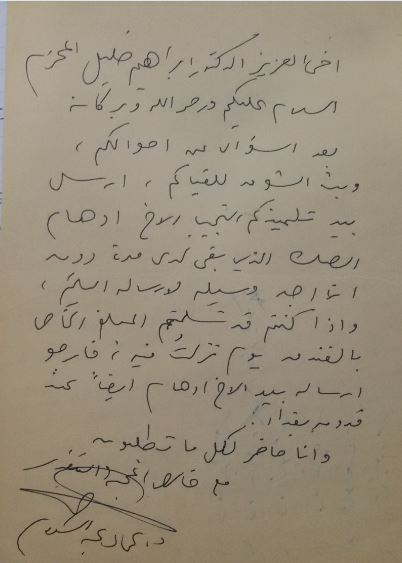 أخي العزيز الدكتور ابراهيم خليل المحترم
السلام عليكم ورحمة الله وبركاته
بعد السؤال عن احوالكم ،
وبث الشوق للقياكم ، ارسل
بيد تلميذكم النجيب الاخ ادهام
الصك الذي بقي لدى مدة دون
ان اجد وسيلة لارساله اليكم ،
واذا كنتم قد تسلمتم المبلغ الخاص
بالفندق يوم نزلتُ فيه ، فارجو
ارساله بيد الاخ ادهام ايضاً عند
قدومه بغداد .
وانا حاضر لكل ما تطلبون
مع خالص
د. عماد عبد السلام